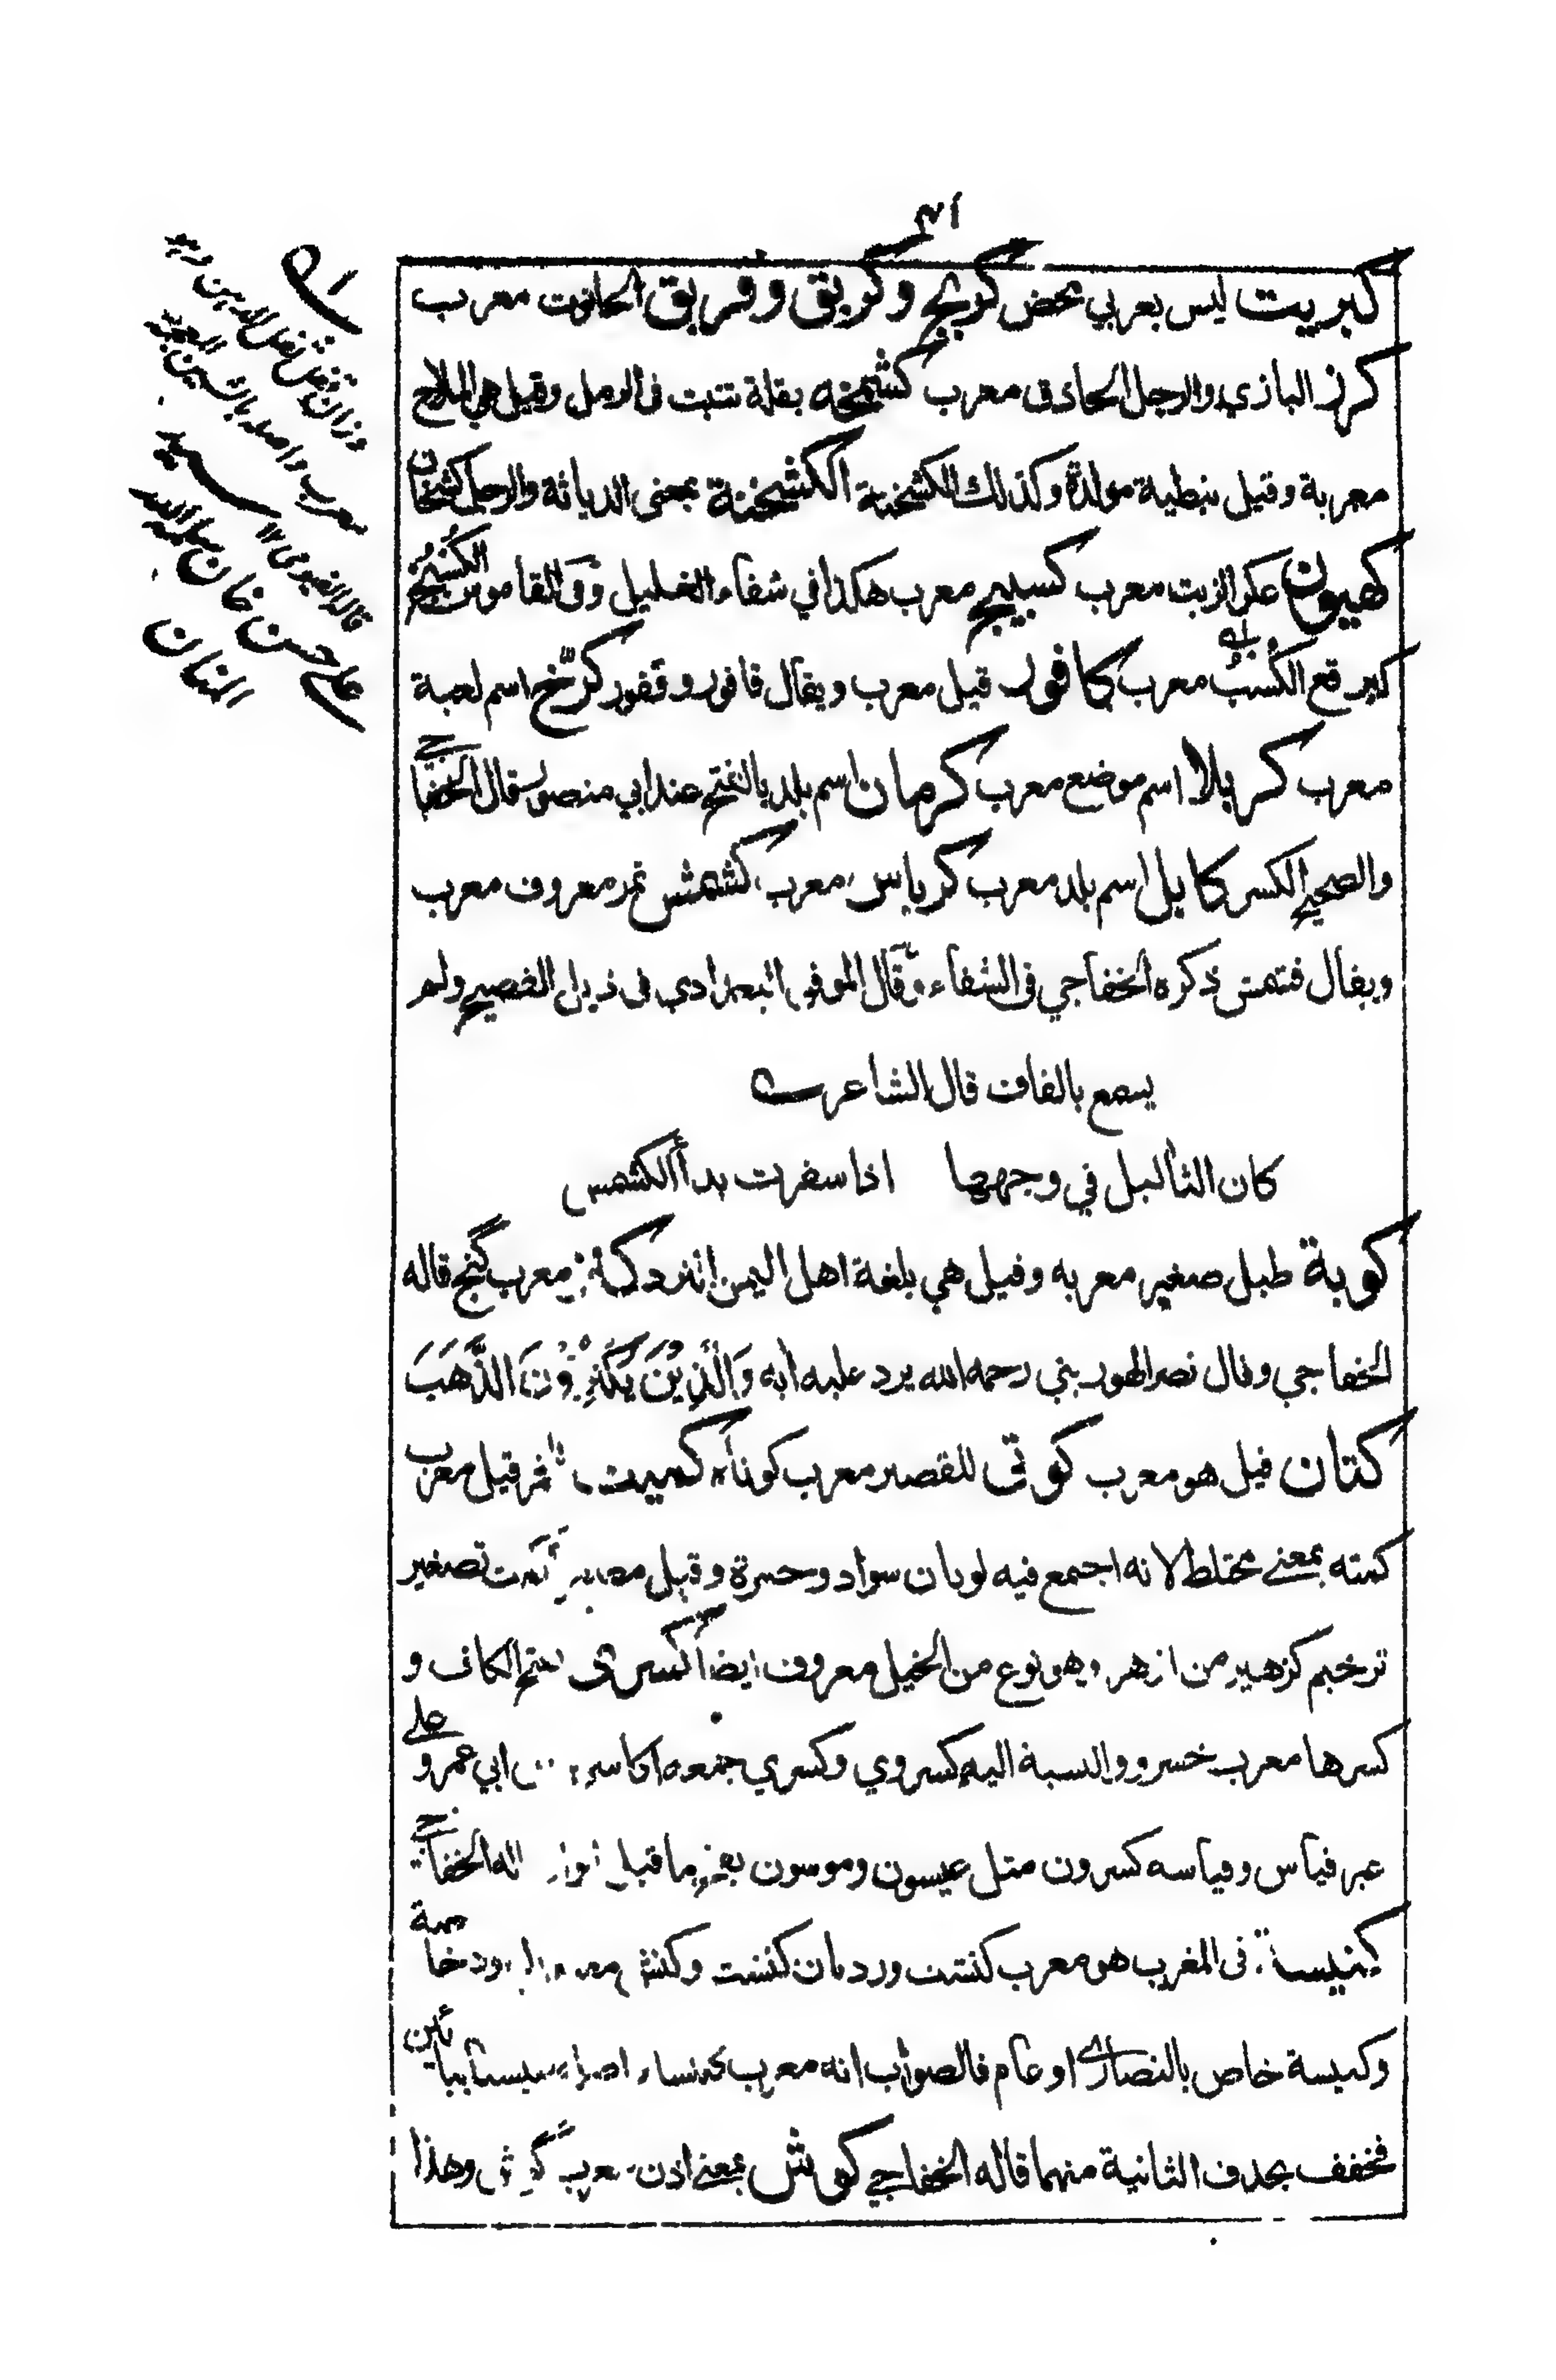 كبريت ليس بعربي محض كربج وكربق وقربق الحانوت معرب
كرز البازي والرجل الحاذق معرب كشمخه بقلة تنبت في الرمل وقيل هي الملاح
معربة وقيل نبطية مولدة وكذلك الكشخنة الكشخنة بمعنى الدياثة والرجل كشخان
كهيون عكر الزيت معرب كسبيج معرب هكذا في شفاء الغليل وفى القاموس الكسبج
كبرقع الكسب معرب كافور قيل معرب ويقال قافور وقفور كرّخ اسم لعبة
معرب كربلا اسم موضع معرب كرمان اسم بلد بالفتح عند ابي منصور قال الخفاجي
والصحيح الكسر كابل اسم بلد معرب كرباس معرب كشمش ثمر معروف معرب
ويقال قشمش ذكره الخفاجي في الشفاء وقال الموفق البغدادي في ذيل الفصيح ولم
يسمع بالقاف قال الشاعر
كان الثاليل في وجهها اذا سفرت بدأ الكشمس
كوبة طبل صغير معربه وقيل هي بلغة اهل اليمن النرد كنز معرب گنج قاله
الخفاجي وقال نصر الهوريني رحمه الله يرد عليه آية وَالَّذِيْنَ يَكْنِزُوْنَ الذَّهَبَ
كتان قيل هو معرب كوتى للقصير معرب كوتاه كميت خمر قيل معرب
كمته بمعنے مختلط لانه اجتمع فيه لونان سواد وحمرة وقيل مصغر اكمت تصغير
ترخيم كزهير من ازهر وهو نوع من الخيل معروف ايضا كسرى بفتح الكاف و
كسرها معرب خسرو والنسبة اليه كسروي وكسري جمعه اكاسرة عن ابي عمرو على
غير قياس وقياسه كسرون مثل عيسون وموسون بفتح ما قبل الواو قاله الخفاجي
كنيسة في المغرب هو معرب كنشت ورد بان كنشت وكنش معبد اليهود خاصة
وكنيسة خاص بالنصارى او عام فالصواب انه معرب كنساء
فخفف بحذف الثانية منهما قاله الخفاجي كوش بمعنے اذن معرب گوش وهذا
وزان فعل
معرب واصله بالشين المعجمة
قاله الفيومي ١٢
سيد
علي حسن خان سلمه الله
المنان